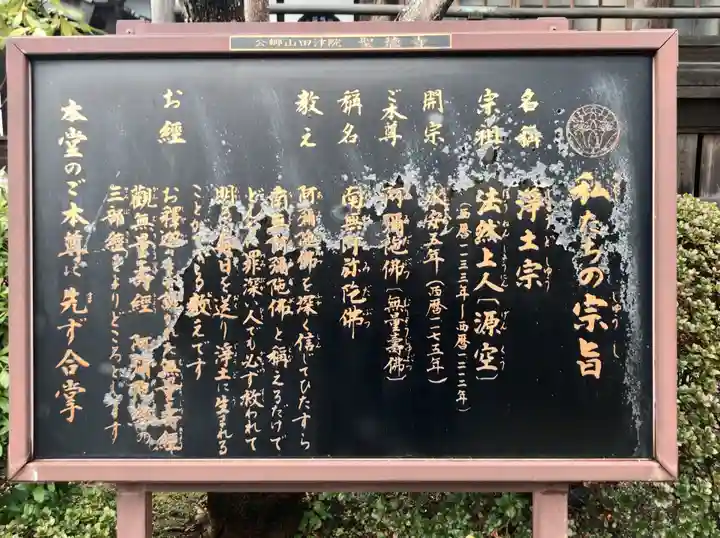 公郷山田津院 聖徳寺
私たちの宗旨
しゅうし
名称 浄土宗
宗祖 法然上人〔源空〕
(西暦一一三三年―西暦一二一二年)
開宗 五年(西暦一一七五年)
ご本尊 阿彌陀佛〔無量壽佛〕
称名 南無阿弥陀佛
教え 阿彌陀佛を深く信じてひたすら
南無阿彌陀佛と称えるだけで
どんな罪深い人でも必ず救われて
明るい毎日を送り浄土に生まれる
ことができる教えです
お経 お釈迦さま 無量壽經
觀無量壽經 阿彌陀經の
三部經をよりどころとします
本堂のご本尊に先ず合掌